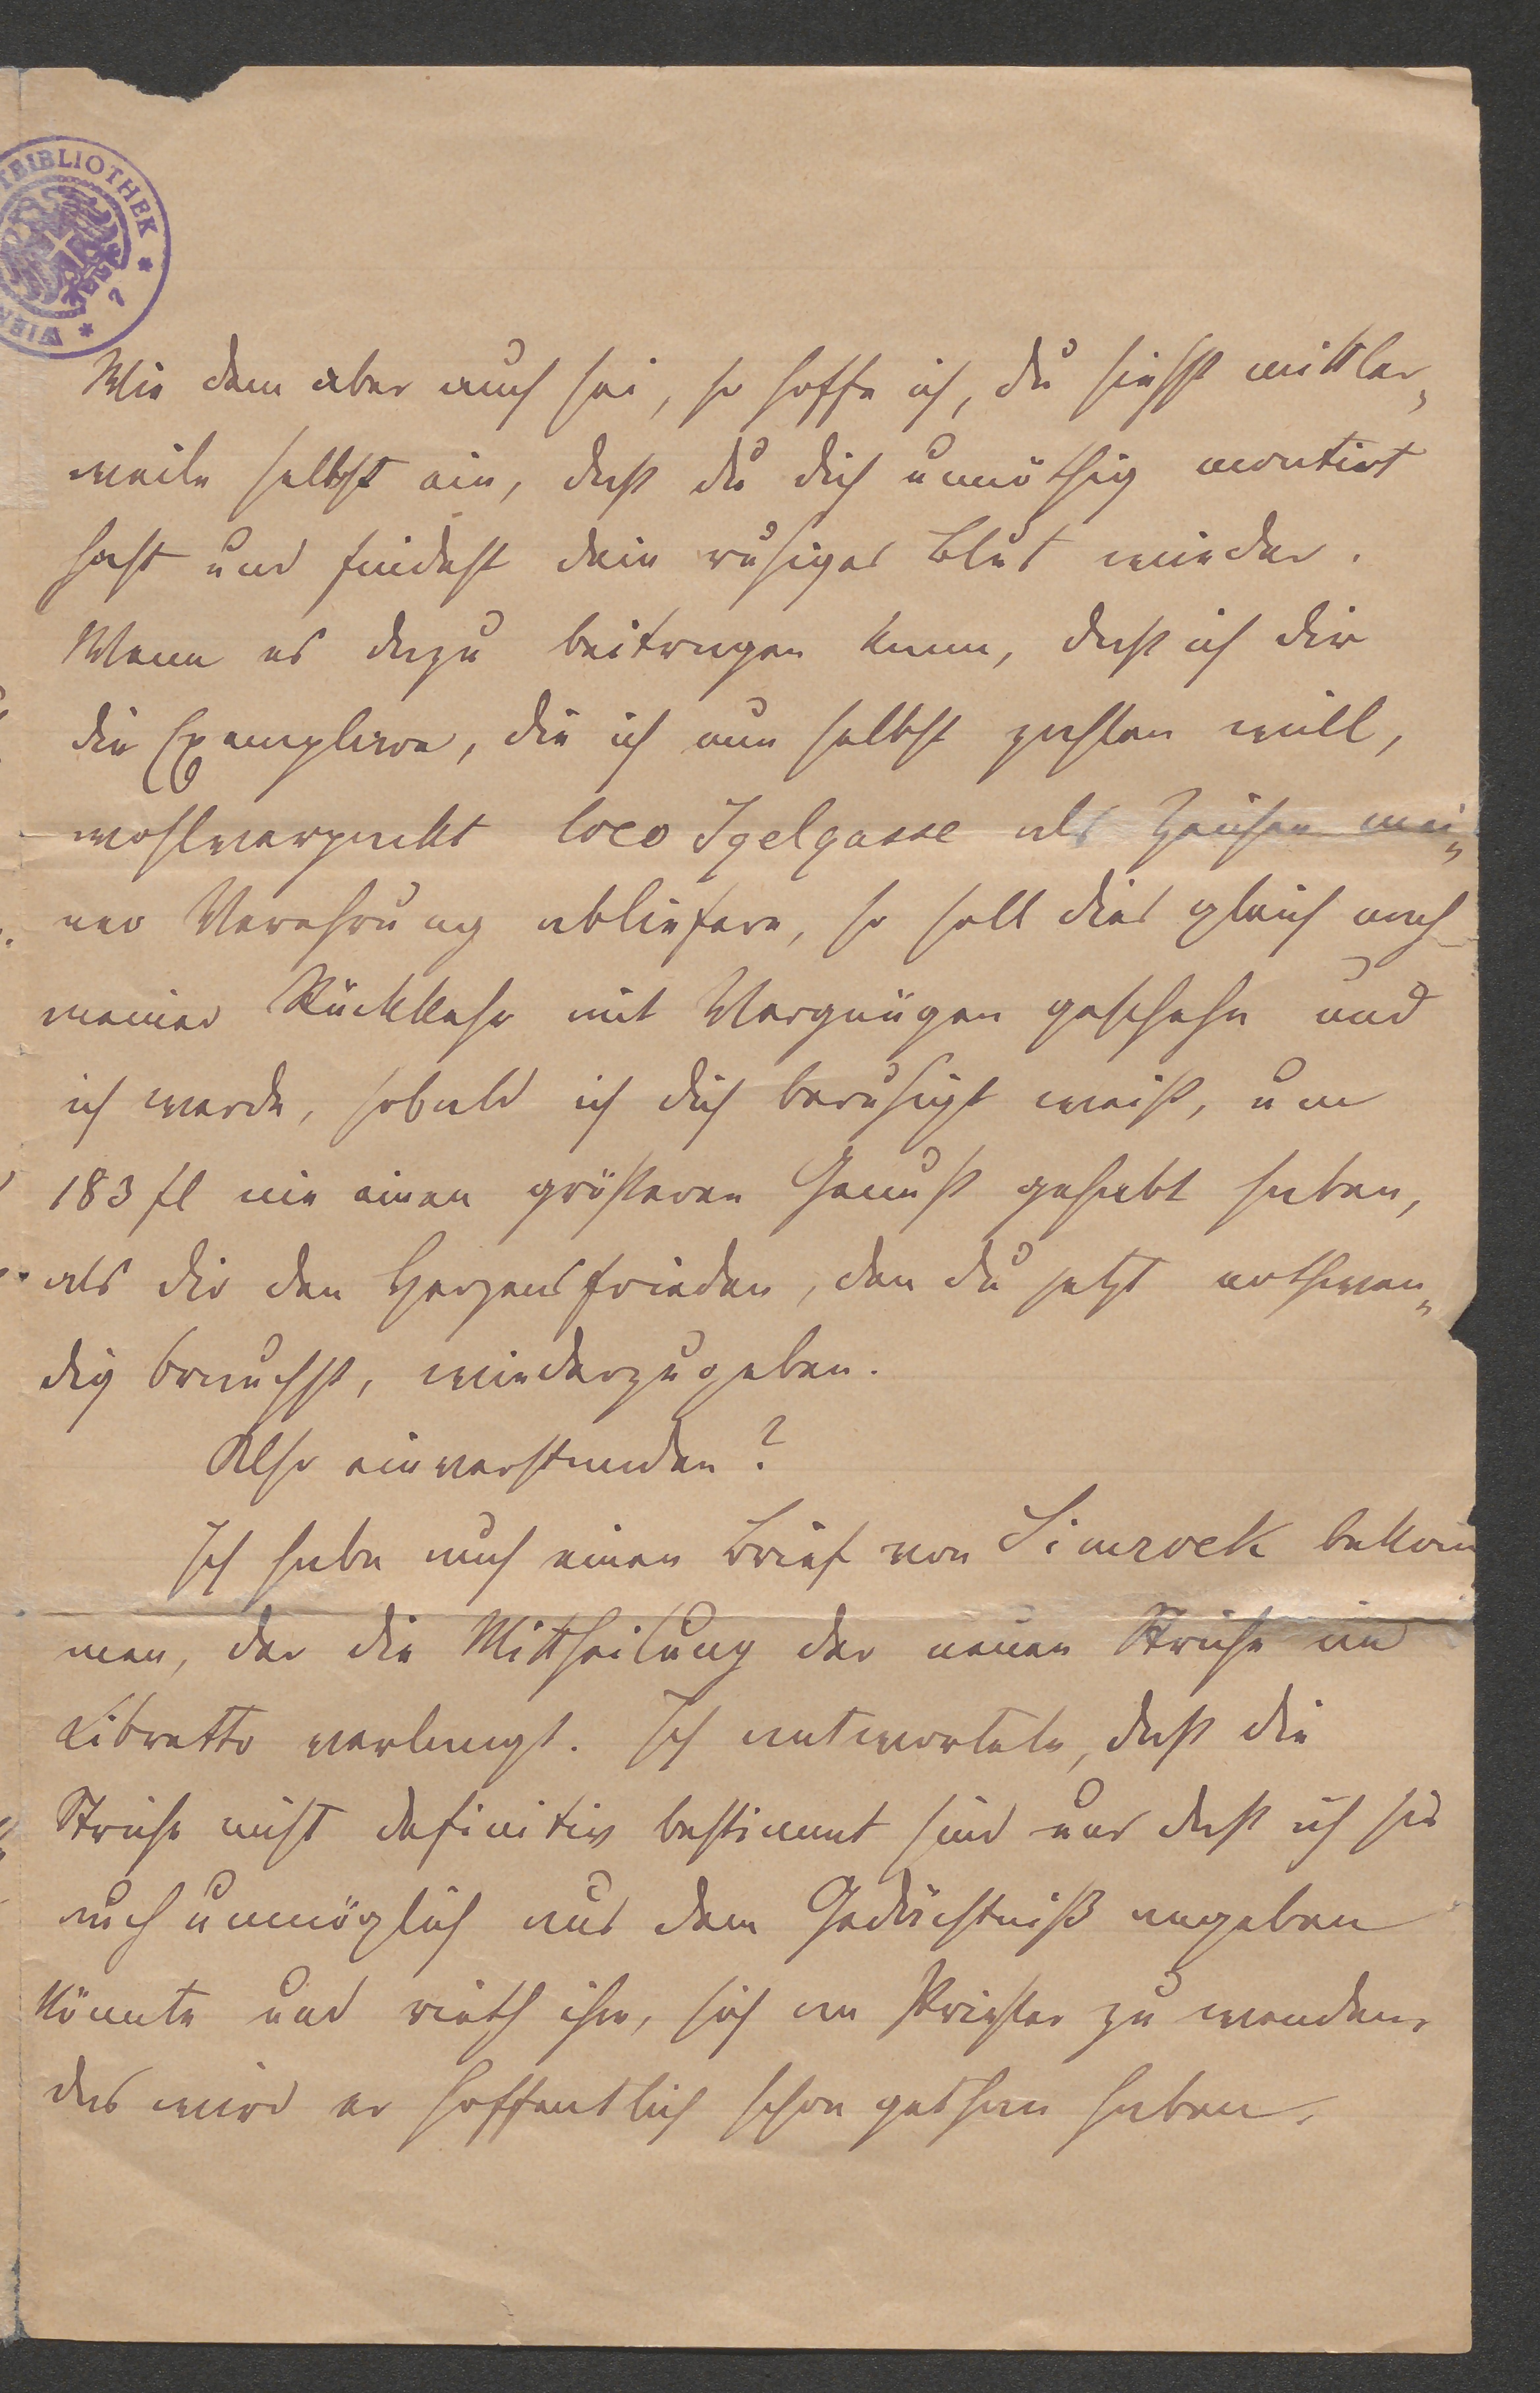 BIBLIOTHEK *
WIEN * 7
Wie dem aber auch sei, so hoffe ich, du siehst mittler„
weile selbst ein, daß du dich unnöthig montirt
hast und findest dein ruhiges Blut wieder.
Wenn es dazu beitragen kann, daß ich dir
die Exemplare, die ich nun selbst zahlen will,
wohlverpackt loco Igelgasse als Zeichen mei„
ner Verehrung abliefere, so soll dies gleich nach
meiner Rückkehr mit Vergnügen geschehn und
ich werde, sobald ich dich beruhigt weiß, um
183 fl nie einen größeren Genuß gehabt haben,
als dir den Herzensfrieden, den du jetzt nothwen„
dig brauchst, wiederzugeben.
Also einverstanden?
Ich habe auch einen Brief von Simrock bekom
men, der die Mittheilung der neuen Striche im
Libretto verlangt. Ich antwortete, daß die
Striche nicht definitiv bestimmt sind und daß ich sie
auch unmöglich aus dem Gedächtniß angeben
könnte und rieth ihm, sich an Priester zu wenden.
das wird er hoffentlich schon gethan haben.